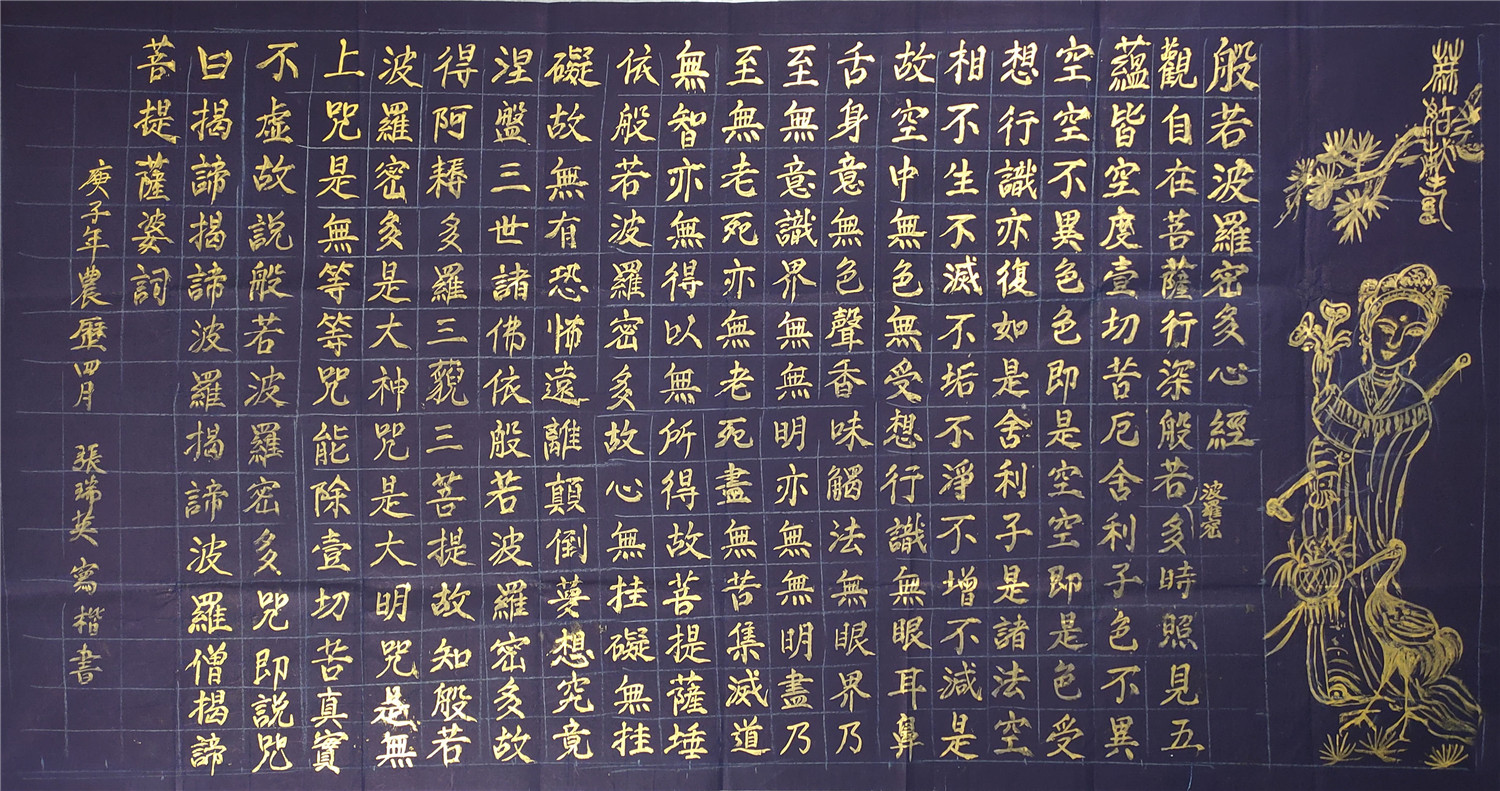 般若波羅密多心經
觀自在菩薩行深般若多時照見五
波羅密
蘊皆空度壹切苦厄舍利子色不異
空空不異色色即是空空即是色受
想行識亦復如是舍利子是諸法空
相不生不滅不垢不淨不增不減是
故空中無色無受想行識無眼耳鼻
舌身意無色聲香味觸法無眼界乃
至無意識界無無明亦無無明盡乃
至無老死亦無老死盡無苦集滅道
無智亦無得以無所得故菩提薩埵
依般若波羅密多故心無挂礙無挂
礙故無有恐怖遠離顛倒夢想究竟
涅盤三世諸佛依般若波羅密多故
得阿耨多羅三藐三菩提故知般若
波羅密多是大神咒是大明咒是無
上咒是無等等咒能除壹切苦真實
不虛故說般若波羅密多咒即說咒
曰揭諦揭諦波羅揭諦波羅僧揭諦
菩提薩婆詞
庚子年農曆四月 張瑞英寫楷書